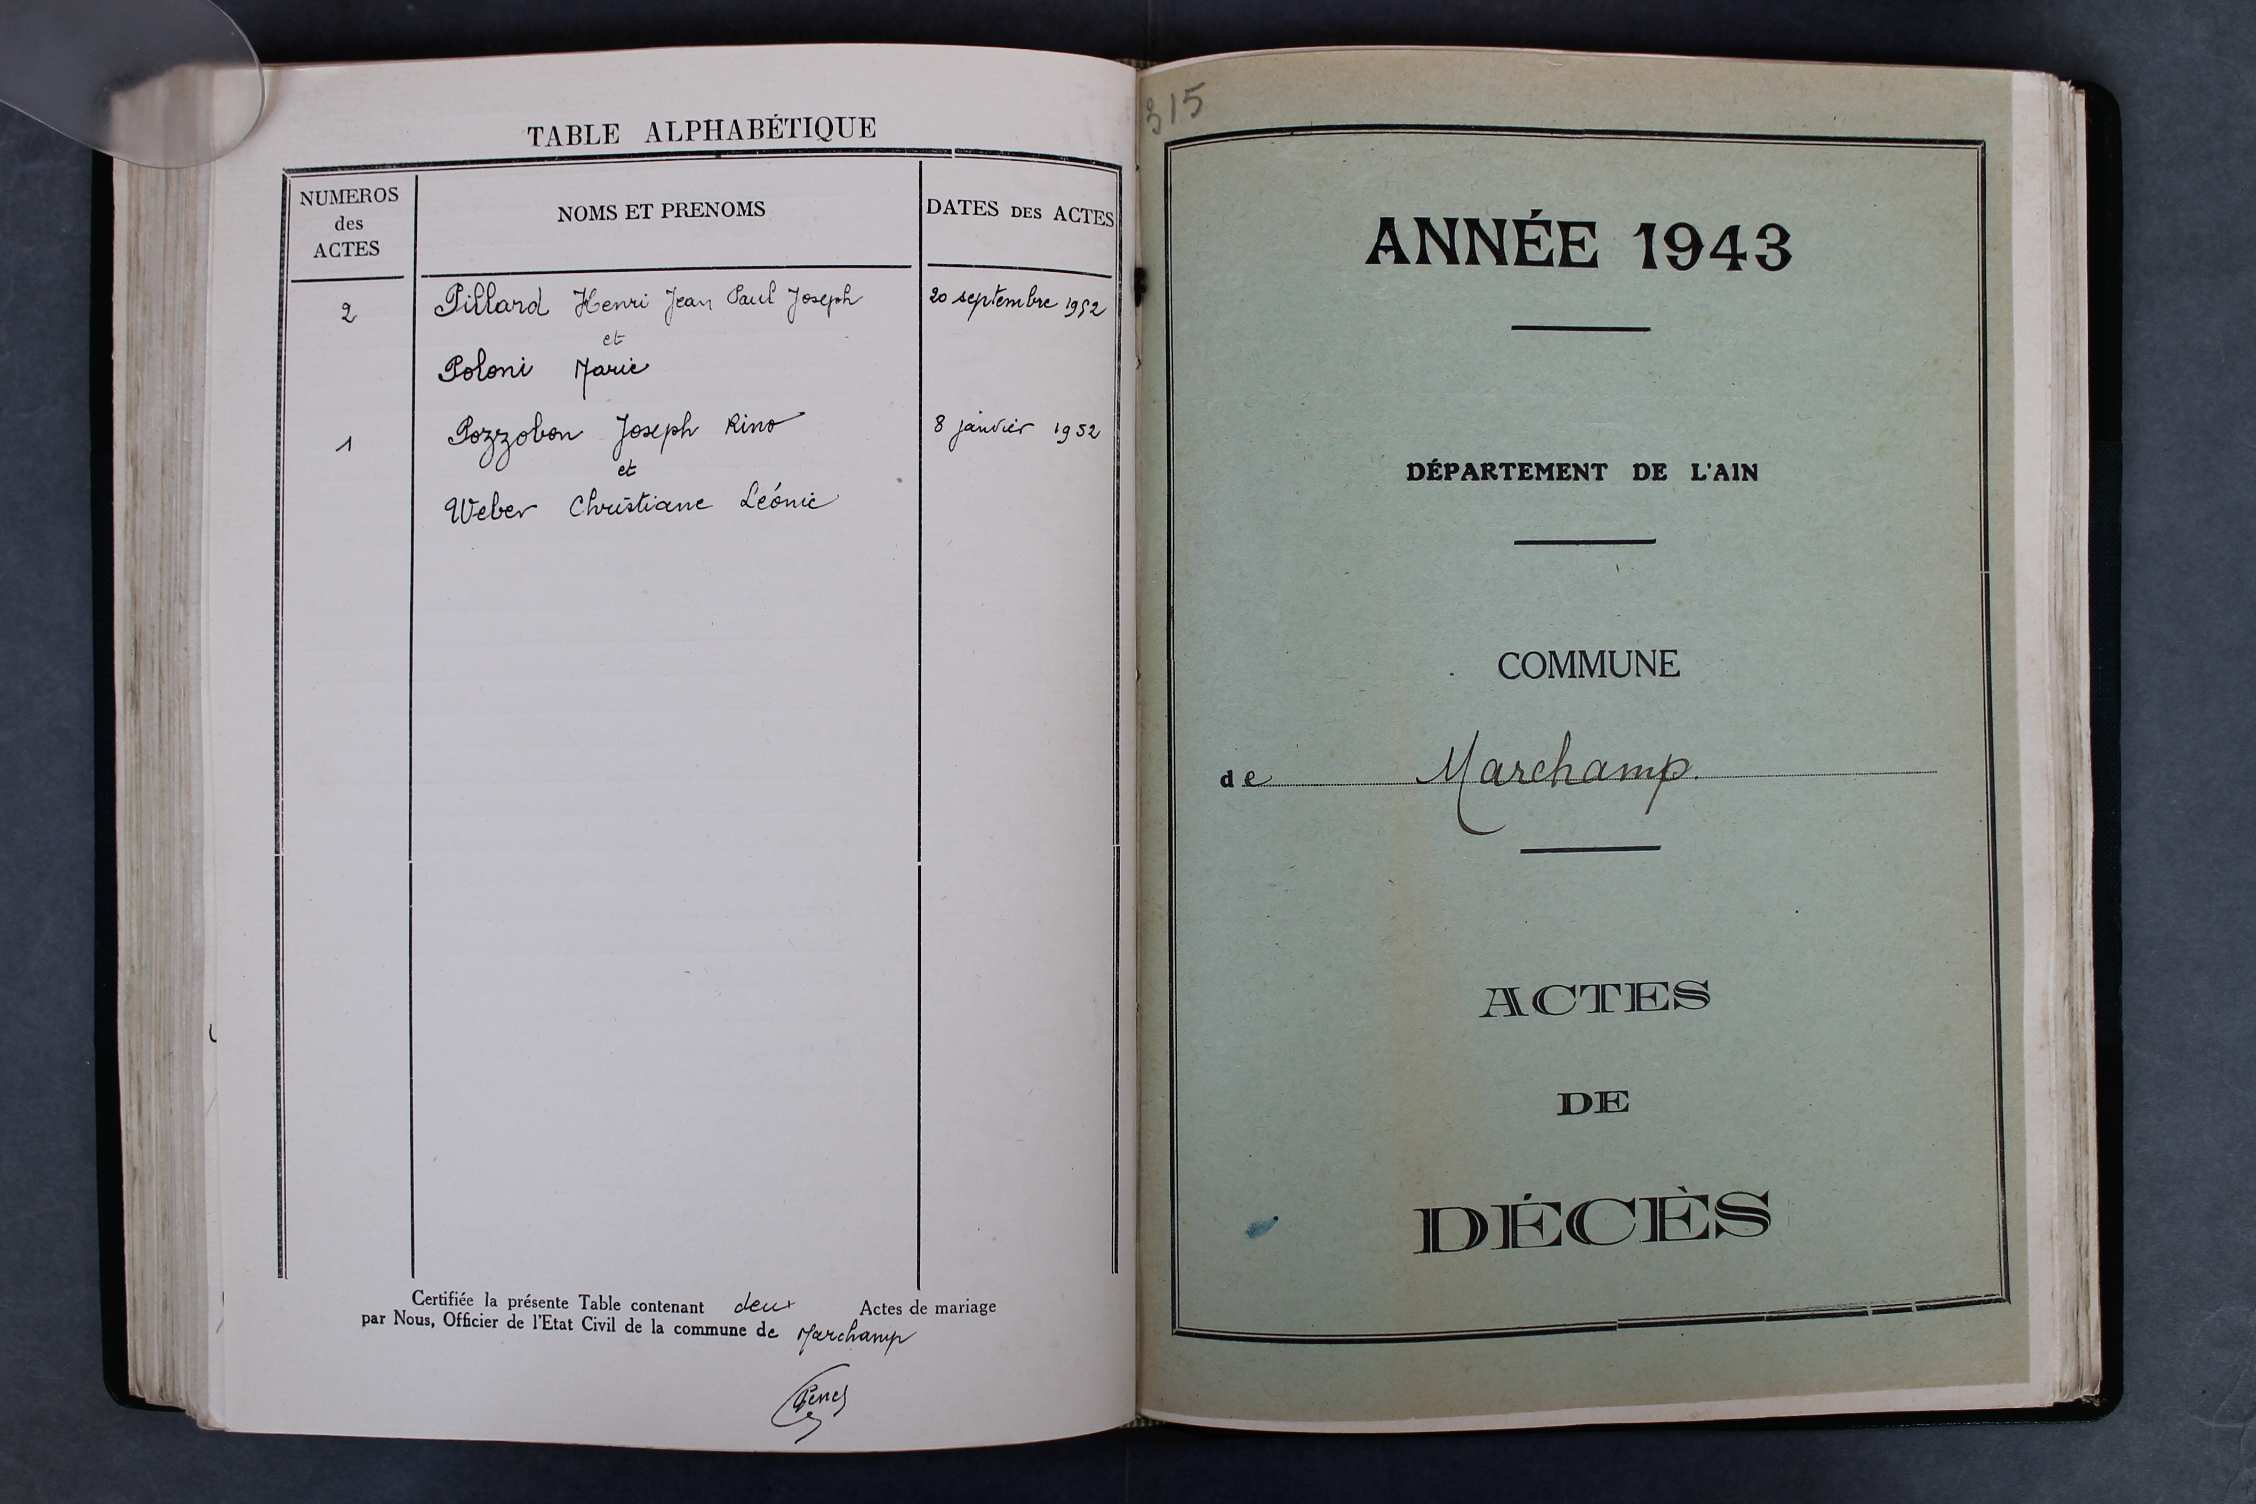 TABLE ALPHABÉTIQUE
NUMEROS
des
ACTES
NOMS ET PRENOMS
DATES DES ACTES
2
Pillard Henri Jean Paul Joseph
20 septembre 1952
et
Poloni Marie
1
Pozzobon Joseph Rino
8 janvier 1952
et
Weber Christiane Léonie
Certifiée la présente Table contenant deux Actes de mariage
par Nous, Officier de l'Etat Civil de la commune de Marchamp
315
ANNÉE 1943
DÉPARTEMENT DE L'AIN
COMMUNE
de Marchamp.
ACTES
DE
DÉCÈS